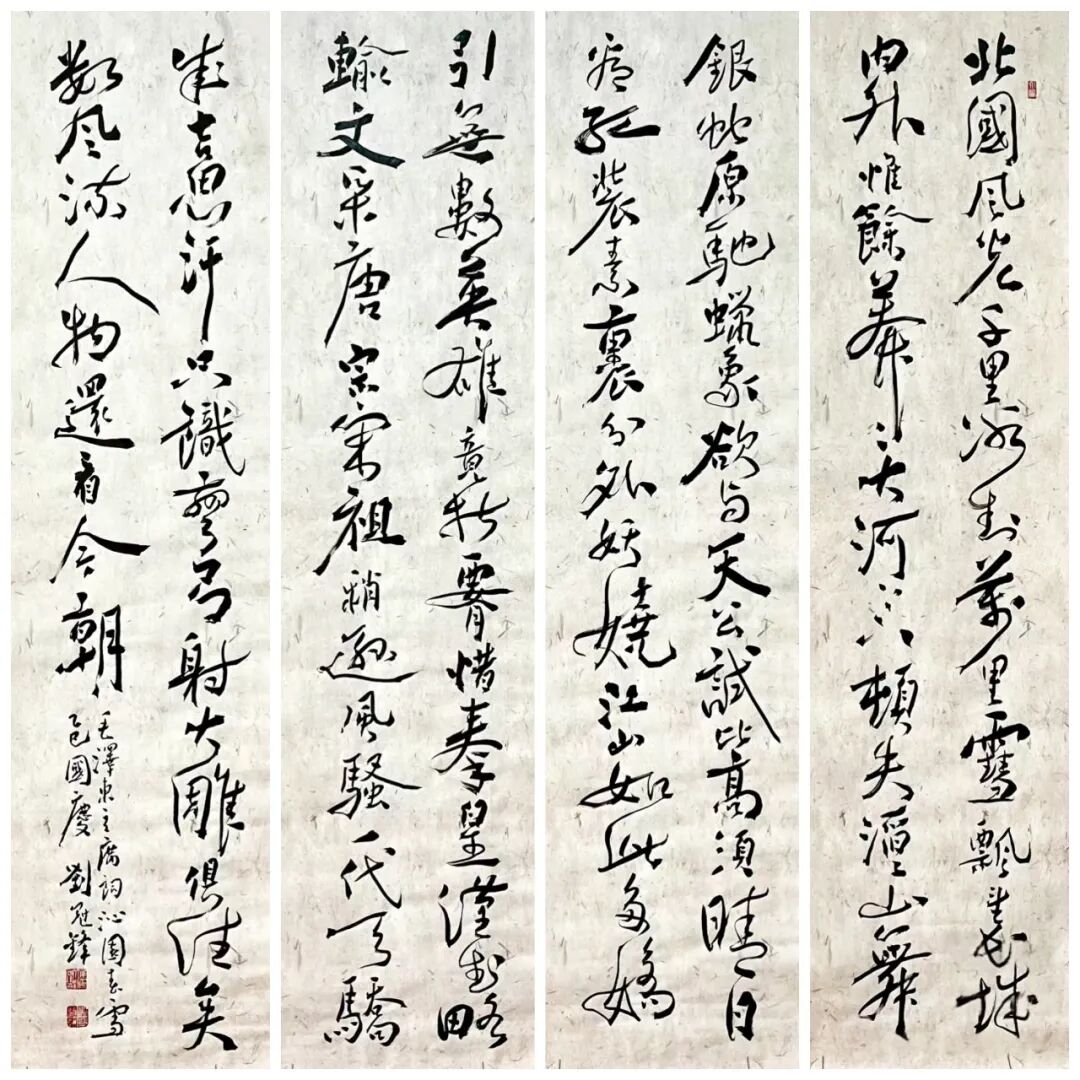 北國风光千里冰封萬里雪飄望長城
内外惟餘莽〻大河上下頓失滔〻山舞
銀蛇原馳蠟象欲与天公試比高須晴日
看紅裝素裹分外妖嬈江山如此多嬌
引無數英雄竟折腰惜秦皇漢武略
輸文采唐宗宋祖稍遜風騷一代天驕
成吉思汗只識彎弓射大雕俱往矣
數风流人物還看今朝
毛澤東主席詞沁園春雪
乙巳國慶 劉冠鋒